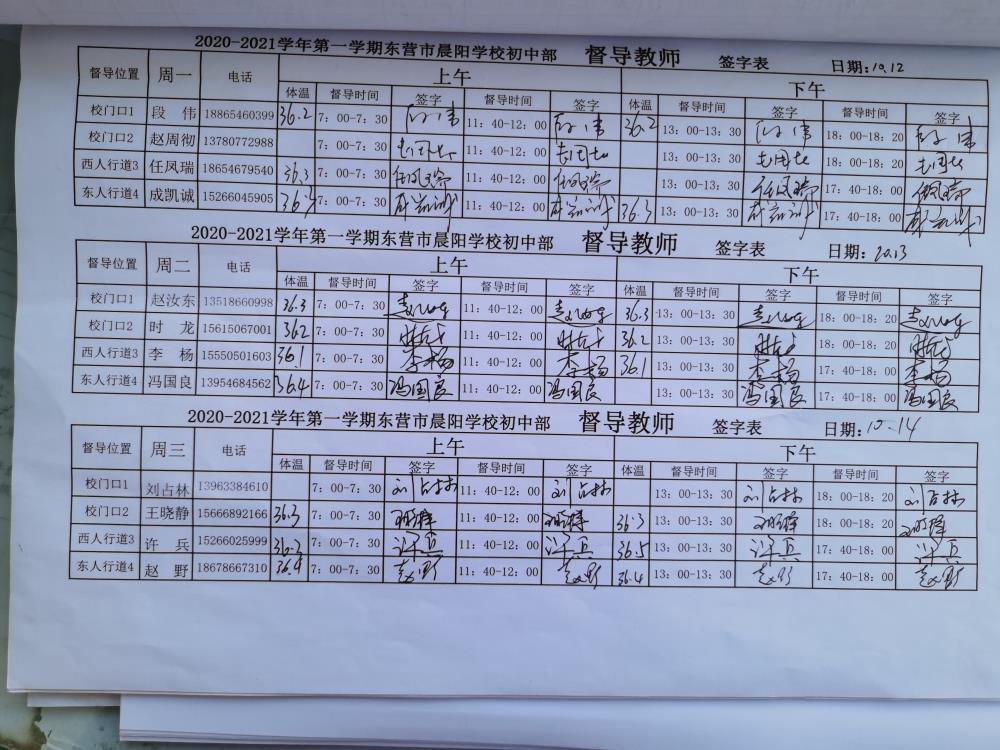 2020-2021学年第一学期东营市晨阳学校初中部 督导教师 签字表 日期：10.12
督导位置 周一 电话 上午 下午
体温 督导时间 签字 督导时间 签字 体温 督导时间 签字 督导时间 签字
校门口1 段 伟 18865460399 36.2 7：00-7：30 段伟 11：40-12：00 段伟 36.2 13：00-13：30 段伟 18：00-18：20 段伟
校门口2 赵周彻 13780772988 7：00-7：30 11：40-12：00 13：00-13：30 18：00-18：20
西人行道3 任凤瑞 18654679540 36.3 7：00-7：30 任凤瑞 11：40-12：00 任凤瑞 13：00-13：30 任凤瑞 17：40-18：00 任凤瑞
东人行道4 成凯诚 15266045905 7：00-7：30 成凯诚 11：40-12：00 成凯诚 36.3 13：00-13：30 成凯诚 17：40-18：00 成凯诚
2020-2021学年第一学期东营市晨阳学校初中部 督导教师 签字表 日期：
督导位置 周二 电话 上午 下午
体温 督导时间 签字 督导时间 签字 体温 督导时间 签字 督导时间 签字
校门口1 赵汝东 13518660998 36.3 7：00-7：30 11：40-12：00 36.3 13：00-13：30 18：00-18：20
校门口2 时 龙 15615067001 36.2 7：00-7：30 时龙 11：40-12：00 时龙 36.2 13：00-13：30 时龙 18：00-18：20 时龙
西人行道3 李 杨 15550501603 36.1 7：00-7：30 李杨 11：40-12：00 李杨 36.1 13：00-13：30 李杨 17：40-18：00 李杨
东人行道4 冯国良 13954684562 36.4 7：00-7：30 冯国良 11：40-12：00 冯国良 13：00-13：30 冯国良 17：40-18：00 冯国良
2020-2021学年第一学期东营市晨阳学校初中部 督导教师 签字表 日期：10.14
督导位置 周三 电话 上午 下午
体温 督导时间 签字 督导时间 签字 体温 督导时间 签字 督导时间 签字
校门口1 刘占林 13963384610 7：00-7：30 刘占林 11：40-12：00 刘占林 13：00-13：30 刘占林 18：00-18：20 刘占林
校门口2 王晓静 15666892166 36.3 7：00-7：30 王晓静 11：40-12：00 王晓静 36.3 13：00-13：30 王晓静 18：00-18：20 王晓静
西人行道3 许 兵 15266025999 36.3 7：00-7：30 许兵 11：40-12：00 许兵 36.5 13：00-13：30 许兵 17：40-18：00 许兵
东人行道4 赵 野 18678667310 36.4 7：00-7：30 赵野 11：40-12：00 赵野 36.4 13：00-13：30 赵野 17：40-18：00 赵野